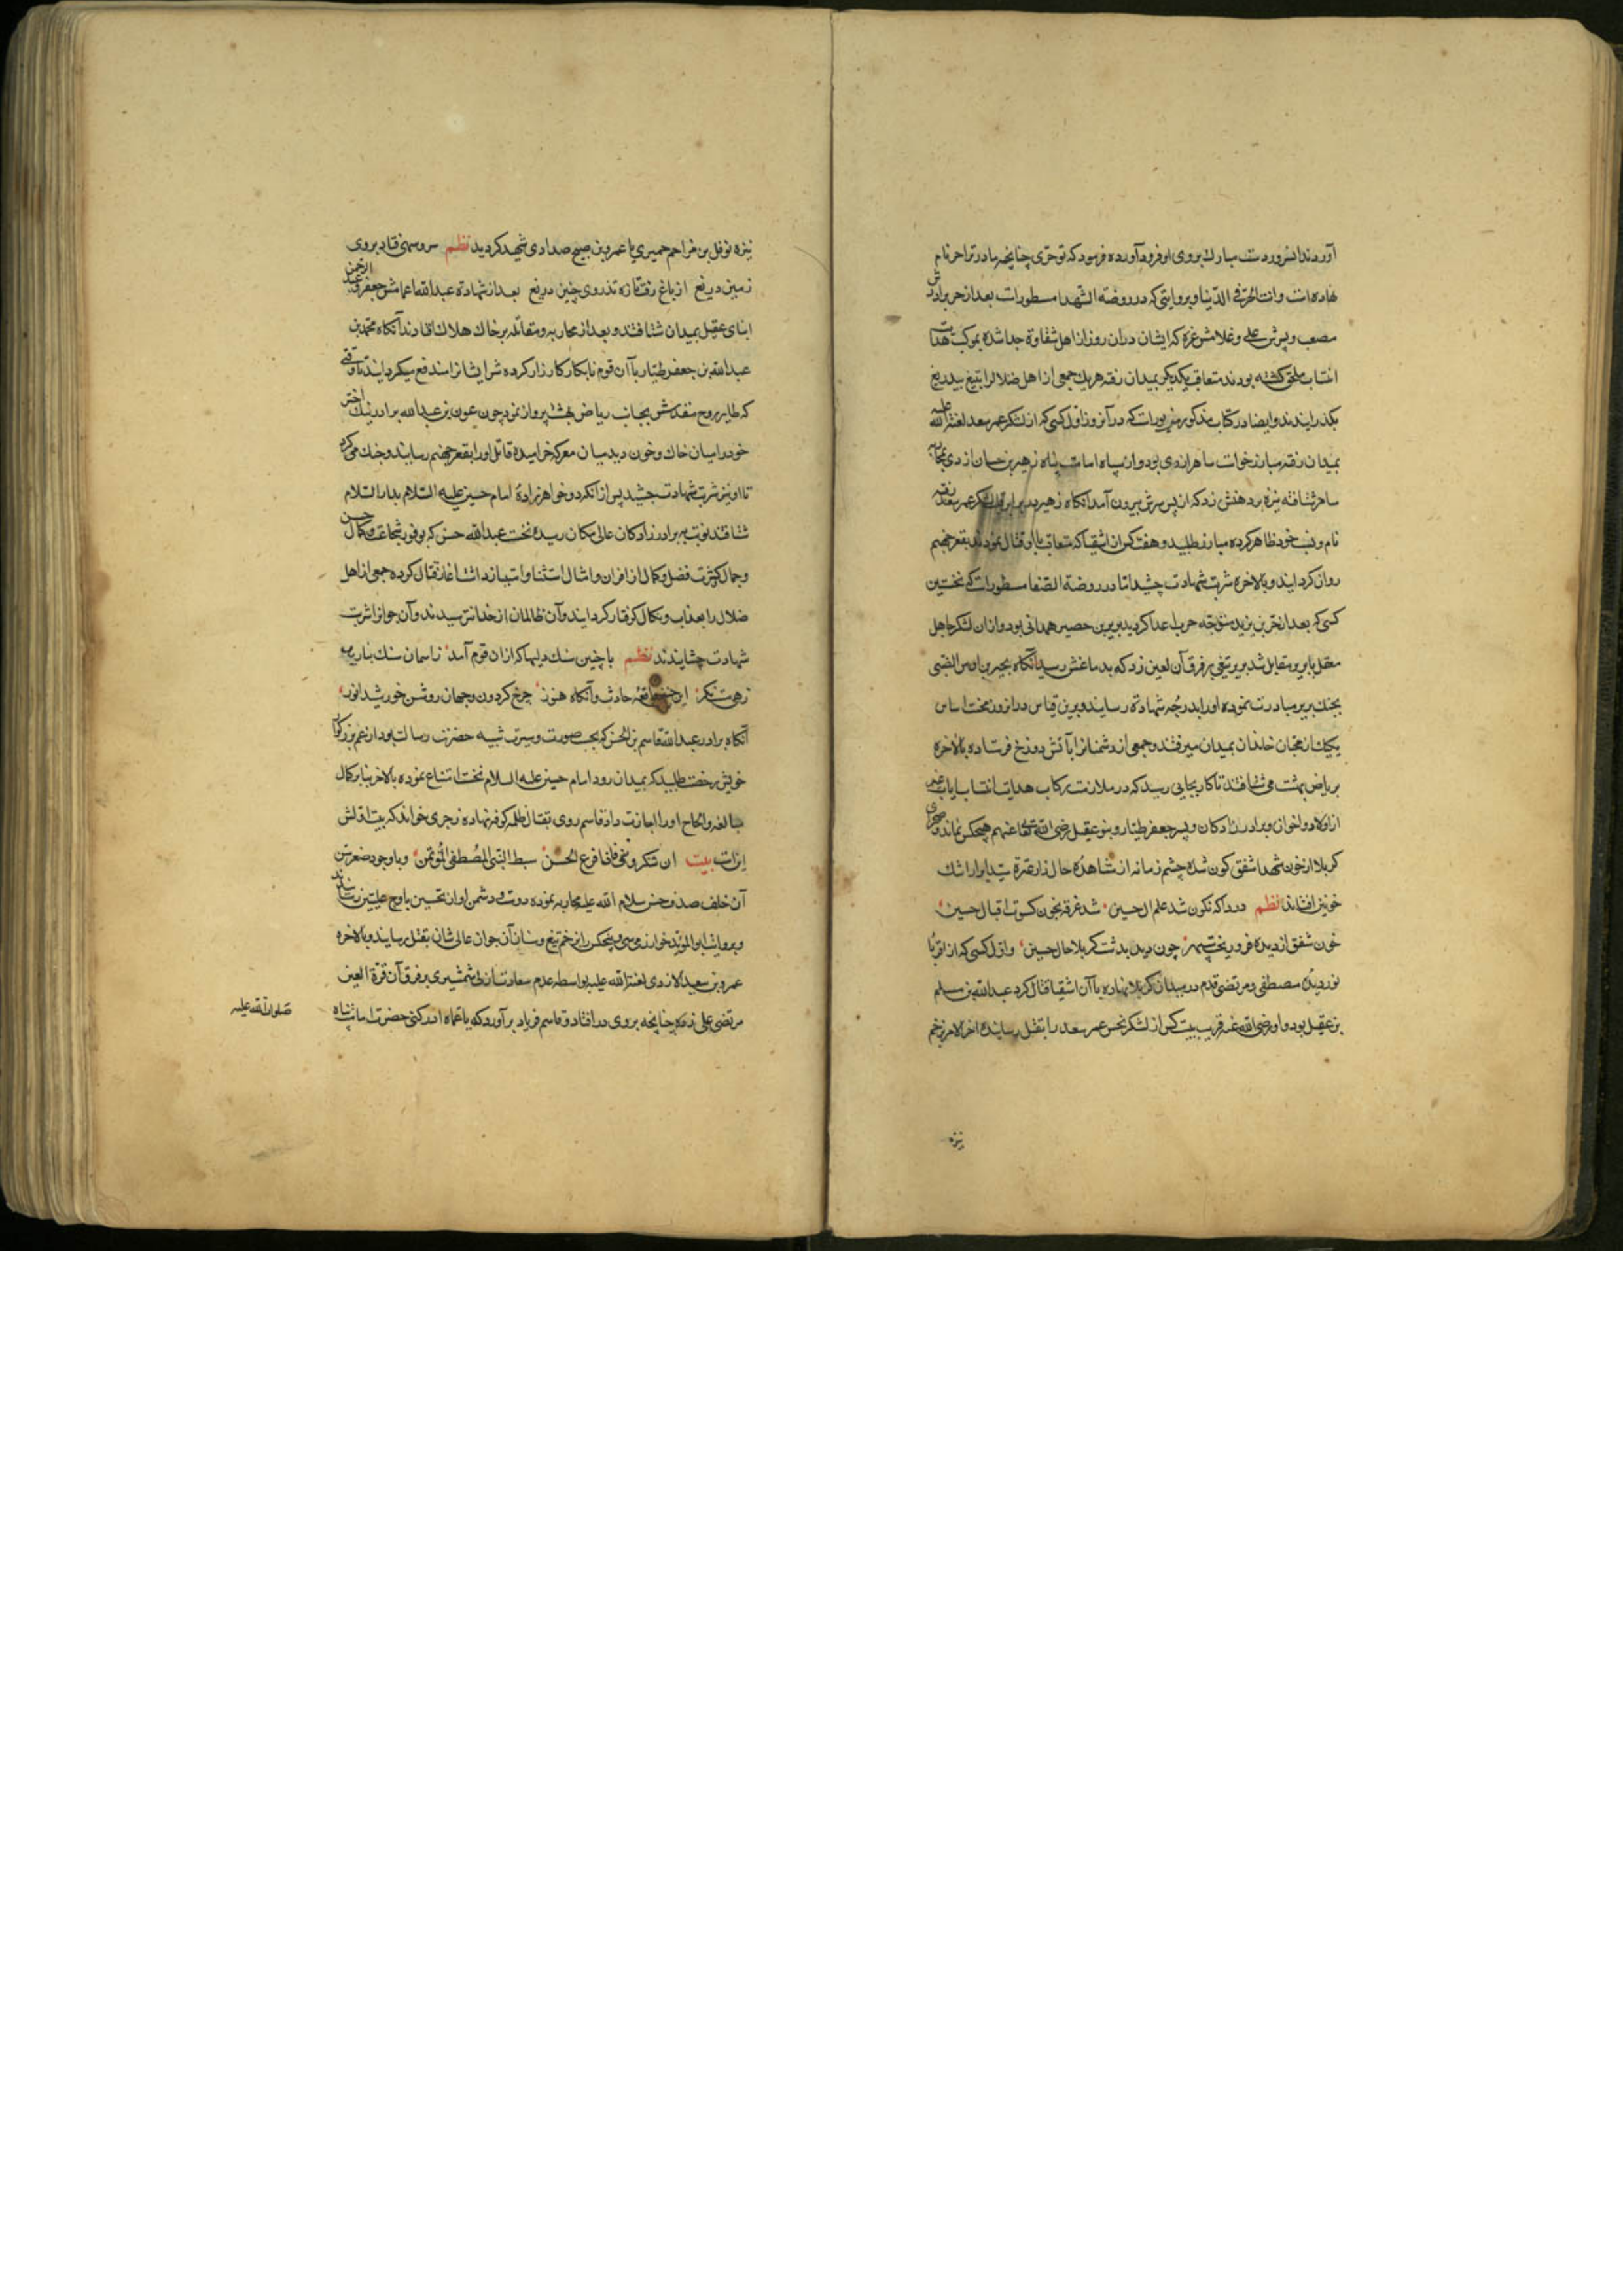 آوردند انسرور دست مبارك بروی او فرود آورده فرمود که تو حرّی چنانچه مادر ترا حر نام
نهاده است وانت الحرّ فی الدّنیا و بروایتی که در روضه الشّهدا مسطورات بعد از حر برادرش
مصعب و پسرش علی و غلامش غره که ایشان دران روز از اهل شقاوة جدا شده بموکب هدایت
انتساب ملحق کشته بودند متعاقب یکدیکر بمیدان رفته هریك جمعی از اهل ضلال را بتیغ بیدریغ
بکذرایندند وایضا در کتاب مذکور مزبورات که در آنروز اول کسی که از لشکر عمر سعد لعنة الله علیه
بمیدان رفته مبارز خواست سامر ازدی بود و از سپاه امامت پناه زهیر بن حسان ازدی بجانب
سامر شتافته نیزه بر دهنش زد که از پس سرش بیرون آمد آنکاه زهیر در برابر قلب لشکر عمر سعد رفته
نام و نسب خود ظاهر کرده مبارز طلبید و هفت کس از اشقیا که متعاقب با او قتال نمودند بقعر جهنم
روان کردایند و بالاخره شربت شهادت چشید اما در روضة الصّفا مسطورات که نخستین
کسی که بعد از حرّ بن یزید متوجّه حرب اعدا کردید بریر بن حصیر همدانی بود و ازان لشکر جاهل
معقل با بریر مقابل شد بریر تیغی بر فرق آن لعین زد که بدماغش رسید آنکاه بجیر بن اوس الضّبی
بجنك بریر مبادرت نموده او را بدرجه شهادة رسانید و برین قیاس دران روز محنت اساس
یکیك از محبّان خاندان بمیدان میرفتند و جمعی از دشمنانرا بآتش دوزخ فرستاده بالاخره
بریاض بهشت می شتافتند تا کار بجایی رسید که در ملازمت رکاب هدایت انتساب ایاب غیر
از اولاد و اخوان و برادر زادکان و پسر جعفر طیّار و بنو عقیل رضی الله تعالی عنهم هیچکس نماند و صحرای
کربلا از خون شهدا شفق کون شده چشم زمانه از مشاهده حال زار عترة سیّد ابرار اشك
خونین افشاند نظم دردا که نکون شد علم ال حسین شد غرقه بخون کسوت اقبال حسین
خون شفق از دیده فرو ریخت سپهر چون دید بدشت کربلا حال حسین و اوّل کسی که از اقربا
نور دیده مصطفی و مرتضی قدم در میدان کربلا نهاده با آن اشقیا قتال کرد عبدالله بن مسلم
بن عقیل بود و او رضی الله عنه قریب بیست کس از لشکر نحس عمر سعد را بقتل رسانیده اخر الامر بزخم
نیزه
نیزه نوفل بن مزاحم حمیری یا عمرو بن صبیح صدادی شهید کردید نظم سرو سهی فتاد بروی
زمین دریغ از باغ رفت تازه تذروی چنین دریغ بعد از شهادة عبدالله اعمامش جعفر و عبد الرحمن
ابنای عقیل بمیدان شتافتند و بعد از محاربه و مقاتله بر خاك هلاك افتادند آنکاه محمّد بن
عبدالله بن جعفر طیّار با آن قوم نابکار کارزار کرده شر ایشانرا مندفع میکردایند تا وقتی
که طایر روح مقدّسش بجانب ریاض بهشت پرواز نمود چون عون بن عبدالله برادر نیك اختر
خود را میان خاك و خون دید میان معرکه خرامیده قاتل او را بقعر جهنم رسایند و جنك می کرد
تا او نیز شربت شهادت چشید پس از انکه دو خواهر زادۀ امام حسین علیه السّلام بدار السّلام
شتافتند نوبت ببرادر زادکان عالی مکان رسیده نخست عبدالله حسن که بوفور شجاعت و کمال حسن
و جمال و کثرت فضل و کمال از اقران و امثال استثنا و امتیاز داشت اغاز قتال کرده جمعی از اهل
ضلال را بعذاب و نکال کرفتار کردایند و آن ظالمان از خدا نترسیدند و آن جوانرا شربت
شهادت چشایندند نظم با چنین سنك دلیها که ازان قوم آمد ز اسمان سنك نبارید
زهی مستنکر این چنین واقعه حادث و آنکاه هنوز چرخ کردون و جهان روشن و خورشید انور
آنکاه برادر عبدالله قاسم بن الحسن که بحسب صورت و سیرت شبیه حضرت رسالت بود از عم بزرکوار
خویش رخصت طلبید که بمیدان رود امام حسین علیه السلام نخست امتناع نموده بالاخر بنابر کمال
مبالغه و الحاح او را اجازت داد و قاسم روی بقتال ظلمه کوفه نهاده رجزی خواند که بیت اولش
اینست بیت ان تنکرونی فانا فرع الحسن سبط النّبی المُصطفی المُؤتمن و با وجود صغر سن
آن خلف صدق حسن سلام الله علیه محاربه نموده دوست و دشمن او را تحسین باوج علیّین رسانیدند
و بروایت ابو المؤید خوارزمی سی و پنجکس را بزخم تیغ و سنان آن جوان عالی شان بقتل رسایند و بالاخره
عمرو بن سعید الازدی لعنة الله علیه بواسطه عدم سعادت ازلی شمشیری بر فرق آن قرّة العین
مرتضی علی زده چنانچه بروی در افتاد و قاسم فریاد بر آورد که یا عمّاه ادرکنی حضرت امامت پناه
صلوات الله علیه